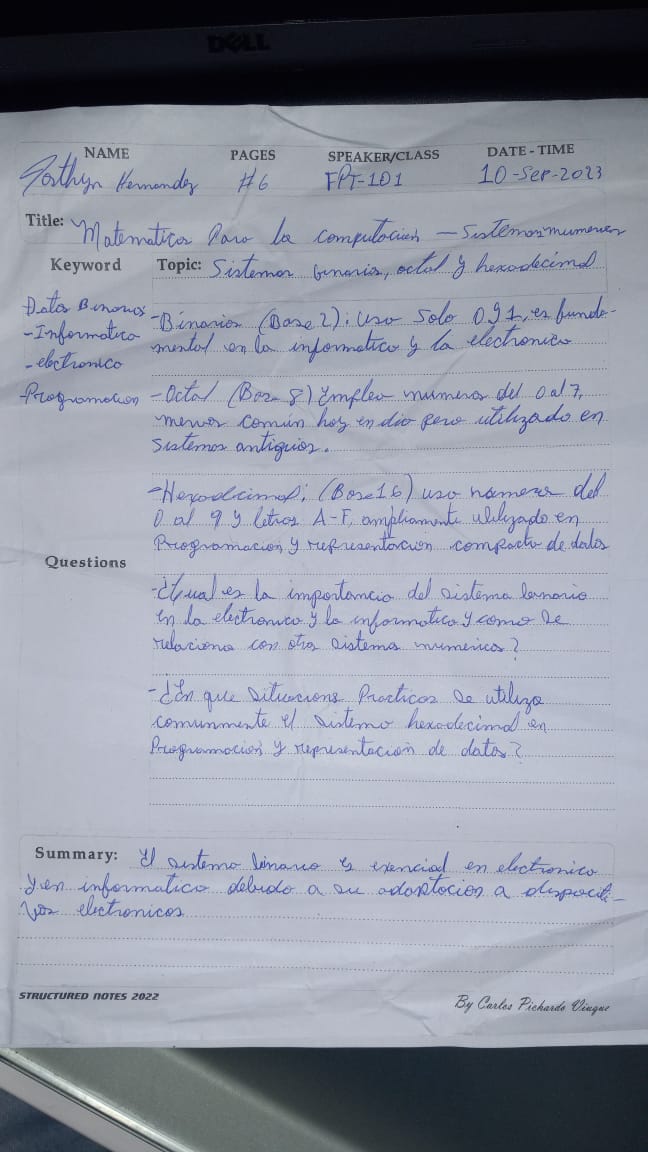 DELL
NAME PAGES SPEAKER/CLASS DATE - TIME
Hernandez #6 FPT-101 10-Sep-2023
Title: Matematica Para la computacion — Sistemas numeros
Keyword Topic: Sistemas binarios, octal y hexadecimal
Datos Binarios
-Informatica
-electronico
-Programacion
-Binarios (Base 2): Usa Solo 0 y 1, es funda-
mental en la informatica y la electronica
-Octal (Base 8) Emplea numeros del 0 al 7,
menos común hoy en dia pero utilizado en
Sistemas antiguos.
-Hexadecimal: (Base 16) usa números del
0 al 9 y letras A-F, ampliamente utilizado en
Programacion y representacion compacta de datos
Questions
-¿Cual es la importancia del sistema binario
en la electronica y la informatica y como se
relaciona con otro sistema numerico?
-¿En que situacions Practicas se utiliza
comunmente el sistema hexadecimal en
Programacion y representacion de datos?
Summary: El sistema binario es exencial en electronica
y en informatica debido a su adaptacion a dispociti-
vos electronicos
STRUCTURED NOTES 2022
By Carlos Pichardo Viuque